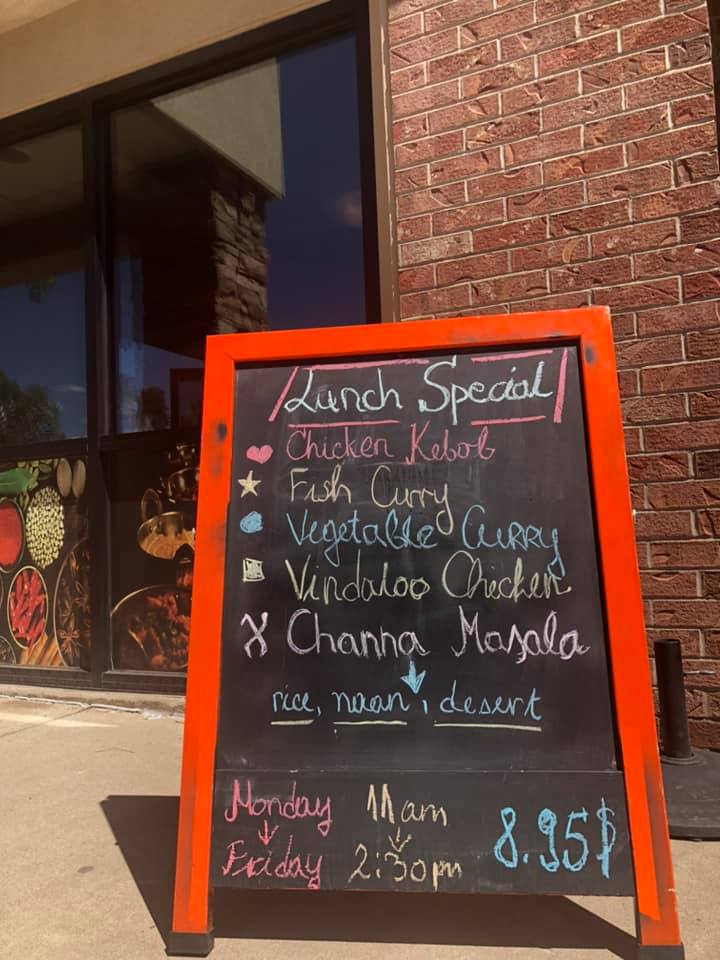 Lunch Special
Chicken Kebob
Fish Curry
Vegetable CURRY
Vindaloo Chicken
Channa Masala
rice, naan, desert
Monday 11am
Friday 2:30pm
8.95$